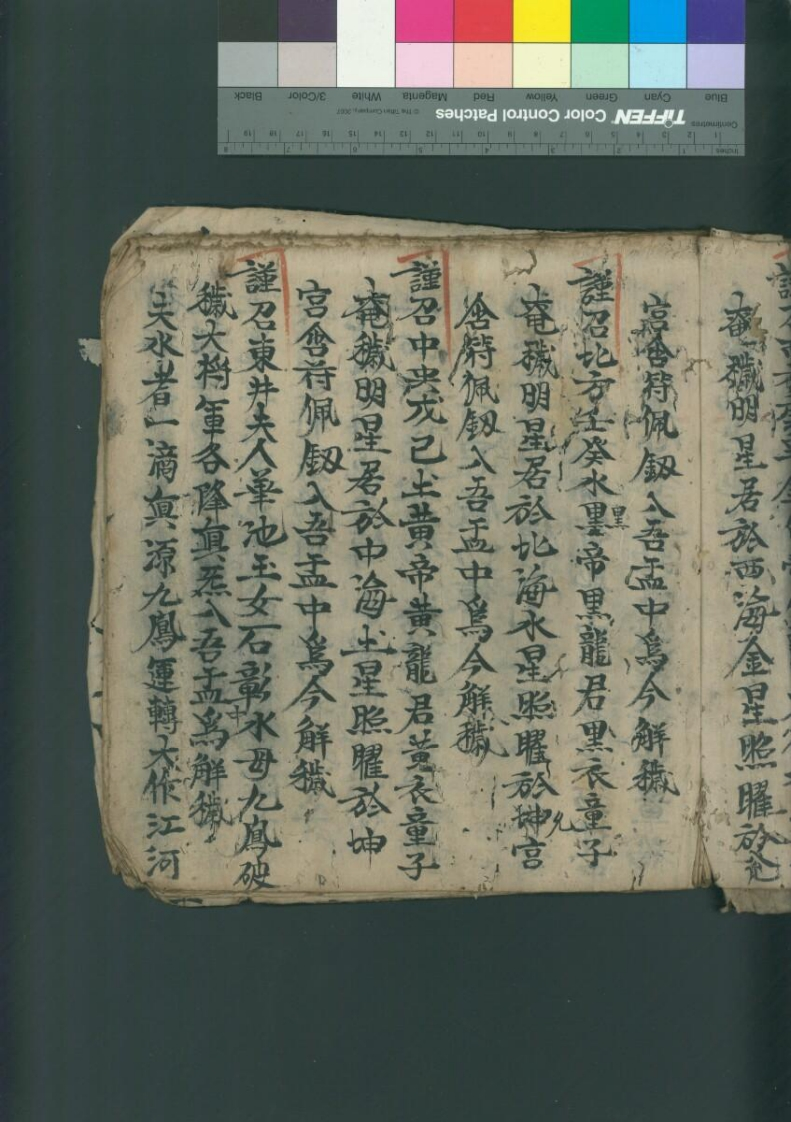 菴穢明星居於西海金星照曜於兊
宫含符佩釼入吾盂中爲今觧穢
謹召北方壬癸水黑帝黑龍君黑衣童子
菴穢明星居於北海水星照曜於坤宮
含符佩釼入吾盂中爲今觧穢
謹召中央戊己土黄帝黄龍君黄衣童子
菴穢明星居於中海土星照曜於坤
宮含符佩釼入吾盂中爲今觧穢
謹召東井夫人華池玉女石彰水母九鳳破
穢大將軍各降真炁入吾盂爲觧穢
夫水者一滴真源九鳳運轉大作江河
Blue Cyan Green Yellow Red Magenta White 3/Color Black
TIFFEN Color Control Patches
© The Tiffen Company, 2007
Centimetres
Inches